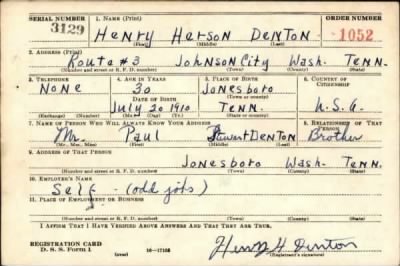 SERIAL NUMBER 1. NAME (Print) ORDER NUMBER
3129 Henry Herson Denton 1052
(First) (Middle) (Last)
2. ADDRESS (Print)
Route #3 Johnson City Wash. Tenn.
(Number and street or R. F. D. number) (Town) (County) (State)
3. TELEPHONE 4. AGE IN YEARS 5. PLACE OF BIRTH 6. COUNTRY OF CITIZENSHIP
None 30 Jonesboro
DATE OF BIRTH (Town or county)
July 20 1910 Tenn. U.S.A.
(Exchange) (Number) (Mo.) (Day) (Yr.) (State or country)
7. NAME OF PERSON WHO WILL ALWAYS KNOW YOUR ADDRESS 8. RELATIONSHIP OF THAT PERSON
Mr. Paul Stewart Denton Brother
(Mr., Mrs., Miss) (First) (Middle) (Last)
9. ADDRESS OF THAT PERSON
Jonesboro Wash. Tenn.
(Number and street or R. F. D. number) (Town) (County) (State)
10. EMPLOYER'S NAME
Self - (odd jobs)
11. PLACE OF EMPLOYMENT OR BUSINESS
(Number and street or R. F. D. number) (Town) (County) (State)
I AFFIRM THAT I HAVE VERIFIED ABOVE ANSWERS AND THAT THEY ARE TRUE.
REGISTRATION CARD
D. S. S. Form 1 (over) 16-17105 Henry H Denton
(Registrant's signature)